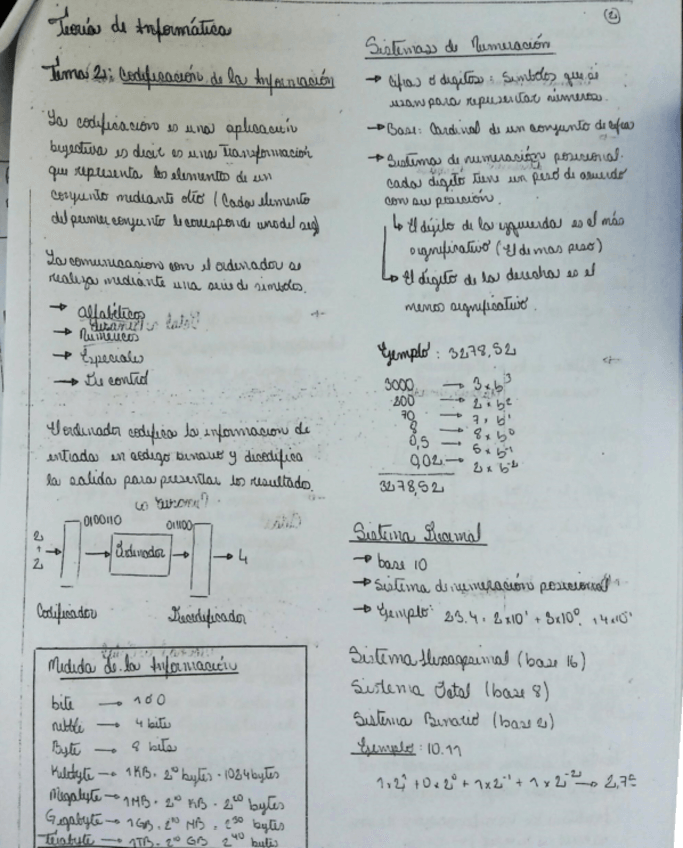 Teoría de Informática
Tema 2: Codificación de la Información
La codificación es una aplicación
biyectiva es decir es una transformación
que representa los elementos de un
conjunto mediante otro (Cada elemento
del primer conjunto le corresponde uno del seg)
La comunicacion con el ordenador se
realiza mediante una serie de simbolos.
→ Alfabéticos
→ Numéricos
→ Especiales
→ De control
El ordenador codifica la informacion de
entrada en codigo binario y dicodifica
la salida para presentar los resultados.
0100110
01100
2
1
2
Ordenador
4
Codificador
Decodificador
Medida de la Información
bite → 1 ó 0
nibble → 4 bits
Byte → 8 bits
Kilobyte → 1KB = 2¹⁰ bytes = 1024 bytes
Megabyte → 1MB = 2¹⁰ KB = 2²⁰ bytes
Gigabyte → 1GB = 2¹⁰ MB = 2³⁰ bytes
Terabyte → 1TB = 2¹⁰ GB 2⁴⁰ bytes
2
Sistemas de Numeración
→ Cifras o digitos: Simbolos que se
usan para representar números.
→ Base: Cardinal de un conjunto de cifras
→ Sistema de numeración posicional.
cada digito tiene un peso de acuerdo
con su posición.
↳ El dígito de la izquierda es el más
significativo (El de mas peso)
↳ El dígito de la derecha es el
menos significativo.
Ejemplo: 3278,52
3000 → 3 x b³
200 → 2 x b²
70 → 7 x b¹
8 → 8 x b⁰
0,5 → 5 x b⁻¹
0,02 → 2 x b⁻²
3278,52
Sistema Decimal
→ base 10
→ Sistema de numeración posicional
→ Ejemplo: 23.4 = 2x10¹ + 3x10⁰ + 4x10⁻¹
Sistema Hexagesimal (base 16)
Sistema Octal (base 8)
Sistema Binario (base 2)
Ejemplo: 10.11
1x2¹ + 0x2⁰ + 1x2⁻¹ + 1x2⁻² → 2,75